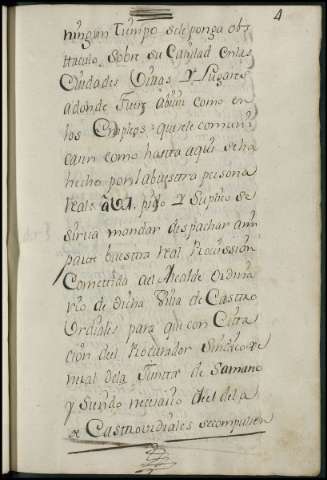 4
ningun tiempo sele ponga obs
ttaculo sobre su Calidad enlas
Ciudades Villas Y Lugares
adonde fuere abivir como en
los Empleos; quesele comuni
caren como hasta aqui seha
hecho por labuestra persona
Real: aV.A. pido Y Suplico se
sirva mandar despachar ami
parte buestra real Provission
Cometida ael Alcalde ordina
rio de dicha Villa de Castro
Urdiales para que con Cita
cion del Procurador Sindico xe
neral dela Juntta de Samano
y Siendo necesario de el dela
de Castrourdiales secompulsen